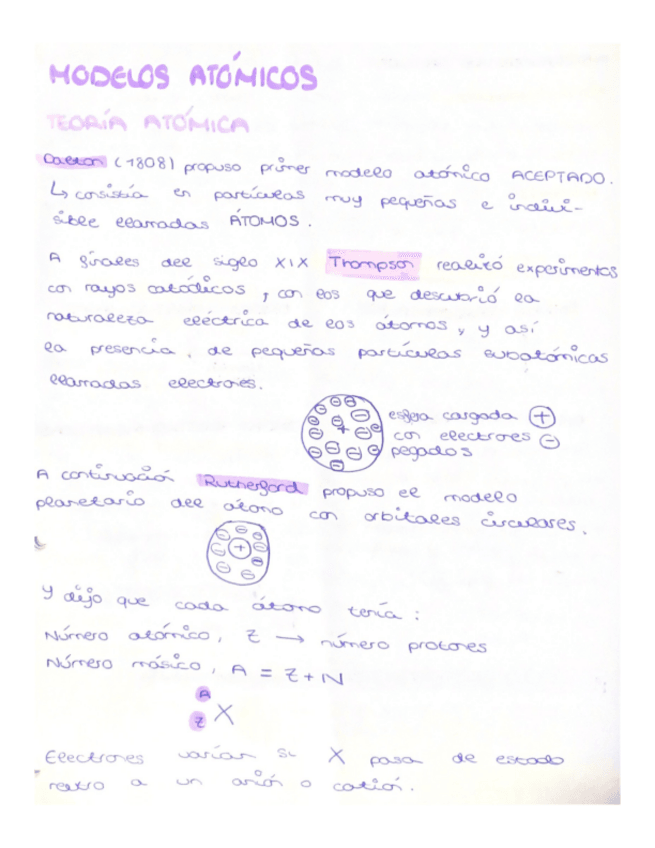 MODELOS ATÓMICOS
TEORÍA ATÓMICA
Dalton (1808) propuso primer modelo atómico ACEPTADO.
↳ consistía en partículas muy pequeñas e indivi-
sible llamadas ÁTOMOS.
A finales del siglo XIX Thompson realizó experimentos
con rayos catódicos, con los que descubrió la
naturaleza eléctrica de los átomos, y así
la presencia, de pequeñas partículas subatómicas
llamadas electrones.
esfera cargada +
con electrones -
pegados
A continuación Rutherford propuso el modelo
planetario del átomo con orbitales circulares.
Y dijo que cada átomo tenía:
Número atómico, Z → número protones
Número másico, A = Z + N
A
Z X
Electrones varían si X pasa de estado
neutro a un anión o catión.